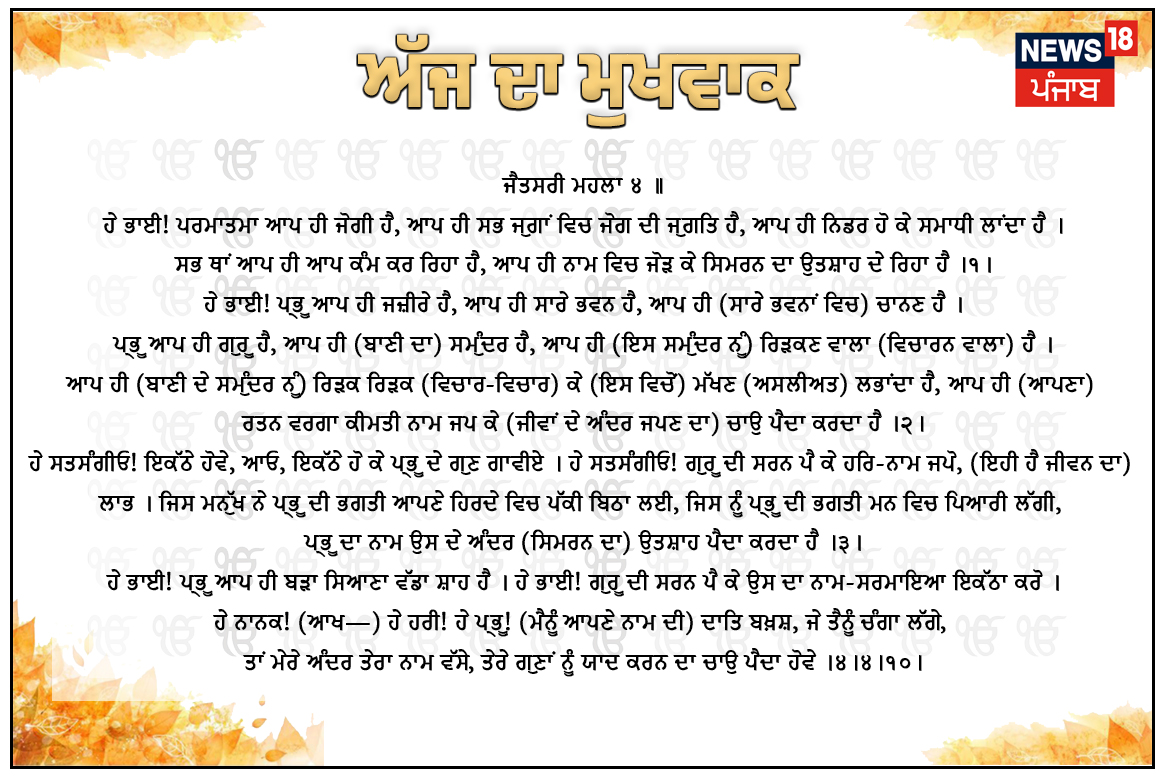 ਅੱਜ ਦਾ ਮੁਖਵਾਕ
NEWS 18
ਪੰਜਾਬ
ਜੈਤਸਰੀ ਮਹਲਾ ੪ ॥
ਹੇ ਭਾਈ! ਪਰਮਾਤਮਾ ਆਪ ਹੀ ਜੋਗੀ ਹੈ, ਆਪ ਹੀ ਸਭ ਜੁਗਾਂ ਵਿਚ ਜੋਗ ਦੀ ਜੁਗਤਿ ਹੈ, ਆਪ ਹੀ ਨਿਡਰ ਹੋ ਕੇ ਸਮਾਧੀ ਲਾਂਦਾ ਹੈ ।
ਸਭ ਥਾਂ ਆਪ ਹੀ ਆਪ ਕੰਮ ਕਰ ਰਿਹਾ ਹੈ, ਆਪ ਹੀ ਨਾਮ ਵਿਚ ਜੋੜ ਕੇ ਸਿਮਰਨ ਦਾ ਉਤਸ਼ਾਹ ਦੇ ਰਿਹਾ ਹੈ ।੧।
ਹੇ ਭਾਈ! ਪ੍ਰਭੂ ਆਪ ਹੀ ਜਜ਼ੀਰੇ ਹੈ, ਆਪ ਹੀ ਸਾਰੇ ਭਵਨ ਹੈ, ਆਪ ਹੀ (ਸਾਰੇ ਭਵਨਾਂ ਵਿਚ) ਚਾਨਣ ਹੈ ।
ਪ੍ਰਭੂ ਆਪ ਹੀ ਗੁਰੂ ਹੈ, ਆਪ ਹੀ (ਬਾਣੀ ਦਾ) ਸਮੁੰਦਰ ਹੈ, ਆਪ ਹੀ (ਇਸ ਸਮੁੰਦਰ ਨੂੰ) ਰਿੜਕਣ ਵਾਲਾ (ਵਿਚਾਰਨ ਵਾਲਾ) ਹੈ ।
ਆਪ ਹੀ (ਬਾਣੀ ਦੇ ਸਮੁੰਦਰ ਨੂੰ) ਰਿੜਕ ਰਿੜਕ (ਵਿਚਾਰ-ਵਿਚਾਰ) ਕੇ (ਇਸ ਵਿਚੋਂ) ਮੱਖਣ (ਅਸਲੀਅਤ) ਲਭਾਂਦਾ ਹੈ, ਆਪ ਹੀ (ਆਪਣਾ)
ਰਤਨ ਵਰਗਾ ਕੀਮਤੀ ਨਾਮ ਜਪ ਕੇ (ਜੀਵਾਂ ਦੇ ਅੰਦਰ ਜਪਣ ਦਾ) ਚਾਉ ਪੈਦਾ ਕਰਦਾ ਹੈ ।੨।
ਹੇ ਸਤਸੰਗੀਓ! ਇਕੱਠੇ ਹੋਵੇ, ਆਓ, ਇਕੱਠੇ ਹੋ ਕੇ ਪ੍ਰਭੂ ਦੇ ਗੁਣ ਗਾਵੀਏ । ਹੇ ਸਤਸੰਗੀਓ! ਗੁਰੂ ਦੀ ਸਰਨ ਪੈ ਕੇ ਹਰਿ-ਨਾਮ ਜਪੋ, (ਇਹੀ ਹੈ ਜੀਵਨ ਦਾ)
ਲਾਭ । ਜਿਸ ਮਨੁੱਖ ਨੇ ਪ੍ਰਭੂ ਦੀ ਭਗਤੀ ਆਪਣੇ ਹਿਰਦੇ ਵਿਚ ਪੱਕੀ ਬਿਠਾ ਲਈ, ਜਿਸ ਨੂੰ ਪ੍ਰਭੂ ਦੀ ਭਗਤੀ ਮਨ ਵਿਚ ਪਿਆਰੀ ਲੱਗੀ,
ਪ੍ਰਭੂ ਦਾ ਨਾਮ ਉਸ ਦੇ ਅੰਦਰ (ਸਿਮਰਨ ਦਾ) ਉਤਸ਼ਾਹ ਪੈਦਾ ਕਰਦਾ ਹੈ ।੩।
ਹੇ ਭਾਈ! ਪ੍ਰਭੂ ਆਪ ਹੀ ਬੜਾ ਸਿਆਣਾ ਵੱਡਾ ਸ਼ਾਹ ਹੈ । ਹੇ ਭਾਈ! ਗੁਰੂ ਦੀ ਸਰਨ ਪੈ ਕੇ ਉਸ ਦਾ ਨਾਮ-ਸਰਮਾਇਆ ਇਕੱਠਾ ਕਰੋ ।
ਹੇ ਨਾਨਕ! (ਆਖ—) ਹੇ ਹਰੀ! ਹੇ ਪ੍ਰਭੂ! (ਮੈਨੂੰ ਆਪਣੇ ਨਾਮ ਦੀ) ਦਾਤਿ ਬਖ਼ਸ਼, ਜੇ ਤੈਨੂੰ ਚੰਗਾ ਲੱਗੇ,
ਤਾਂ ਮੇਰੇ ਅੰਦਰ ਤੇਰਾ ਨਾਮ ਵੱਸੇ, ਤੇਰੇ ਗੁਣਾਂ ਨੂੰ ਯਾਦ ਕਰਨ ਦਾ ਚਾਉ ਪੈਦਾ ਹੋਵੇ ।੪।੪।੧੦।